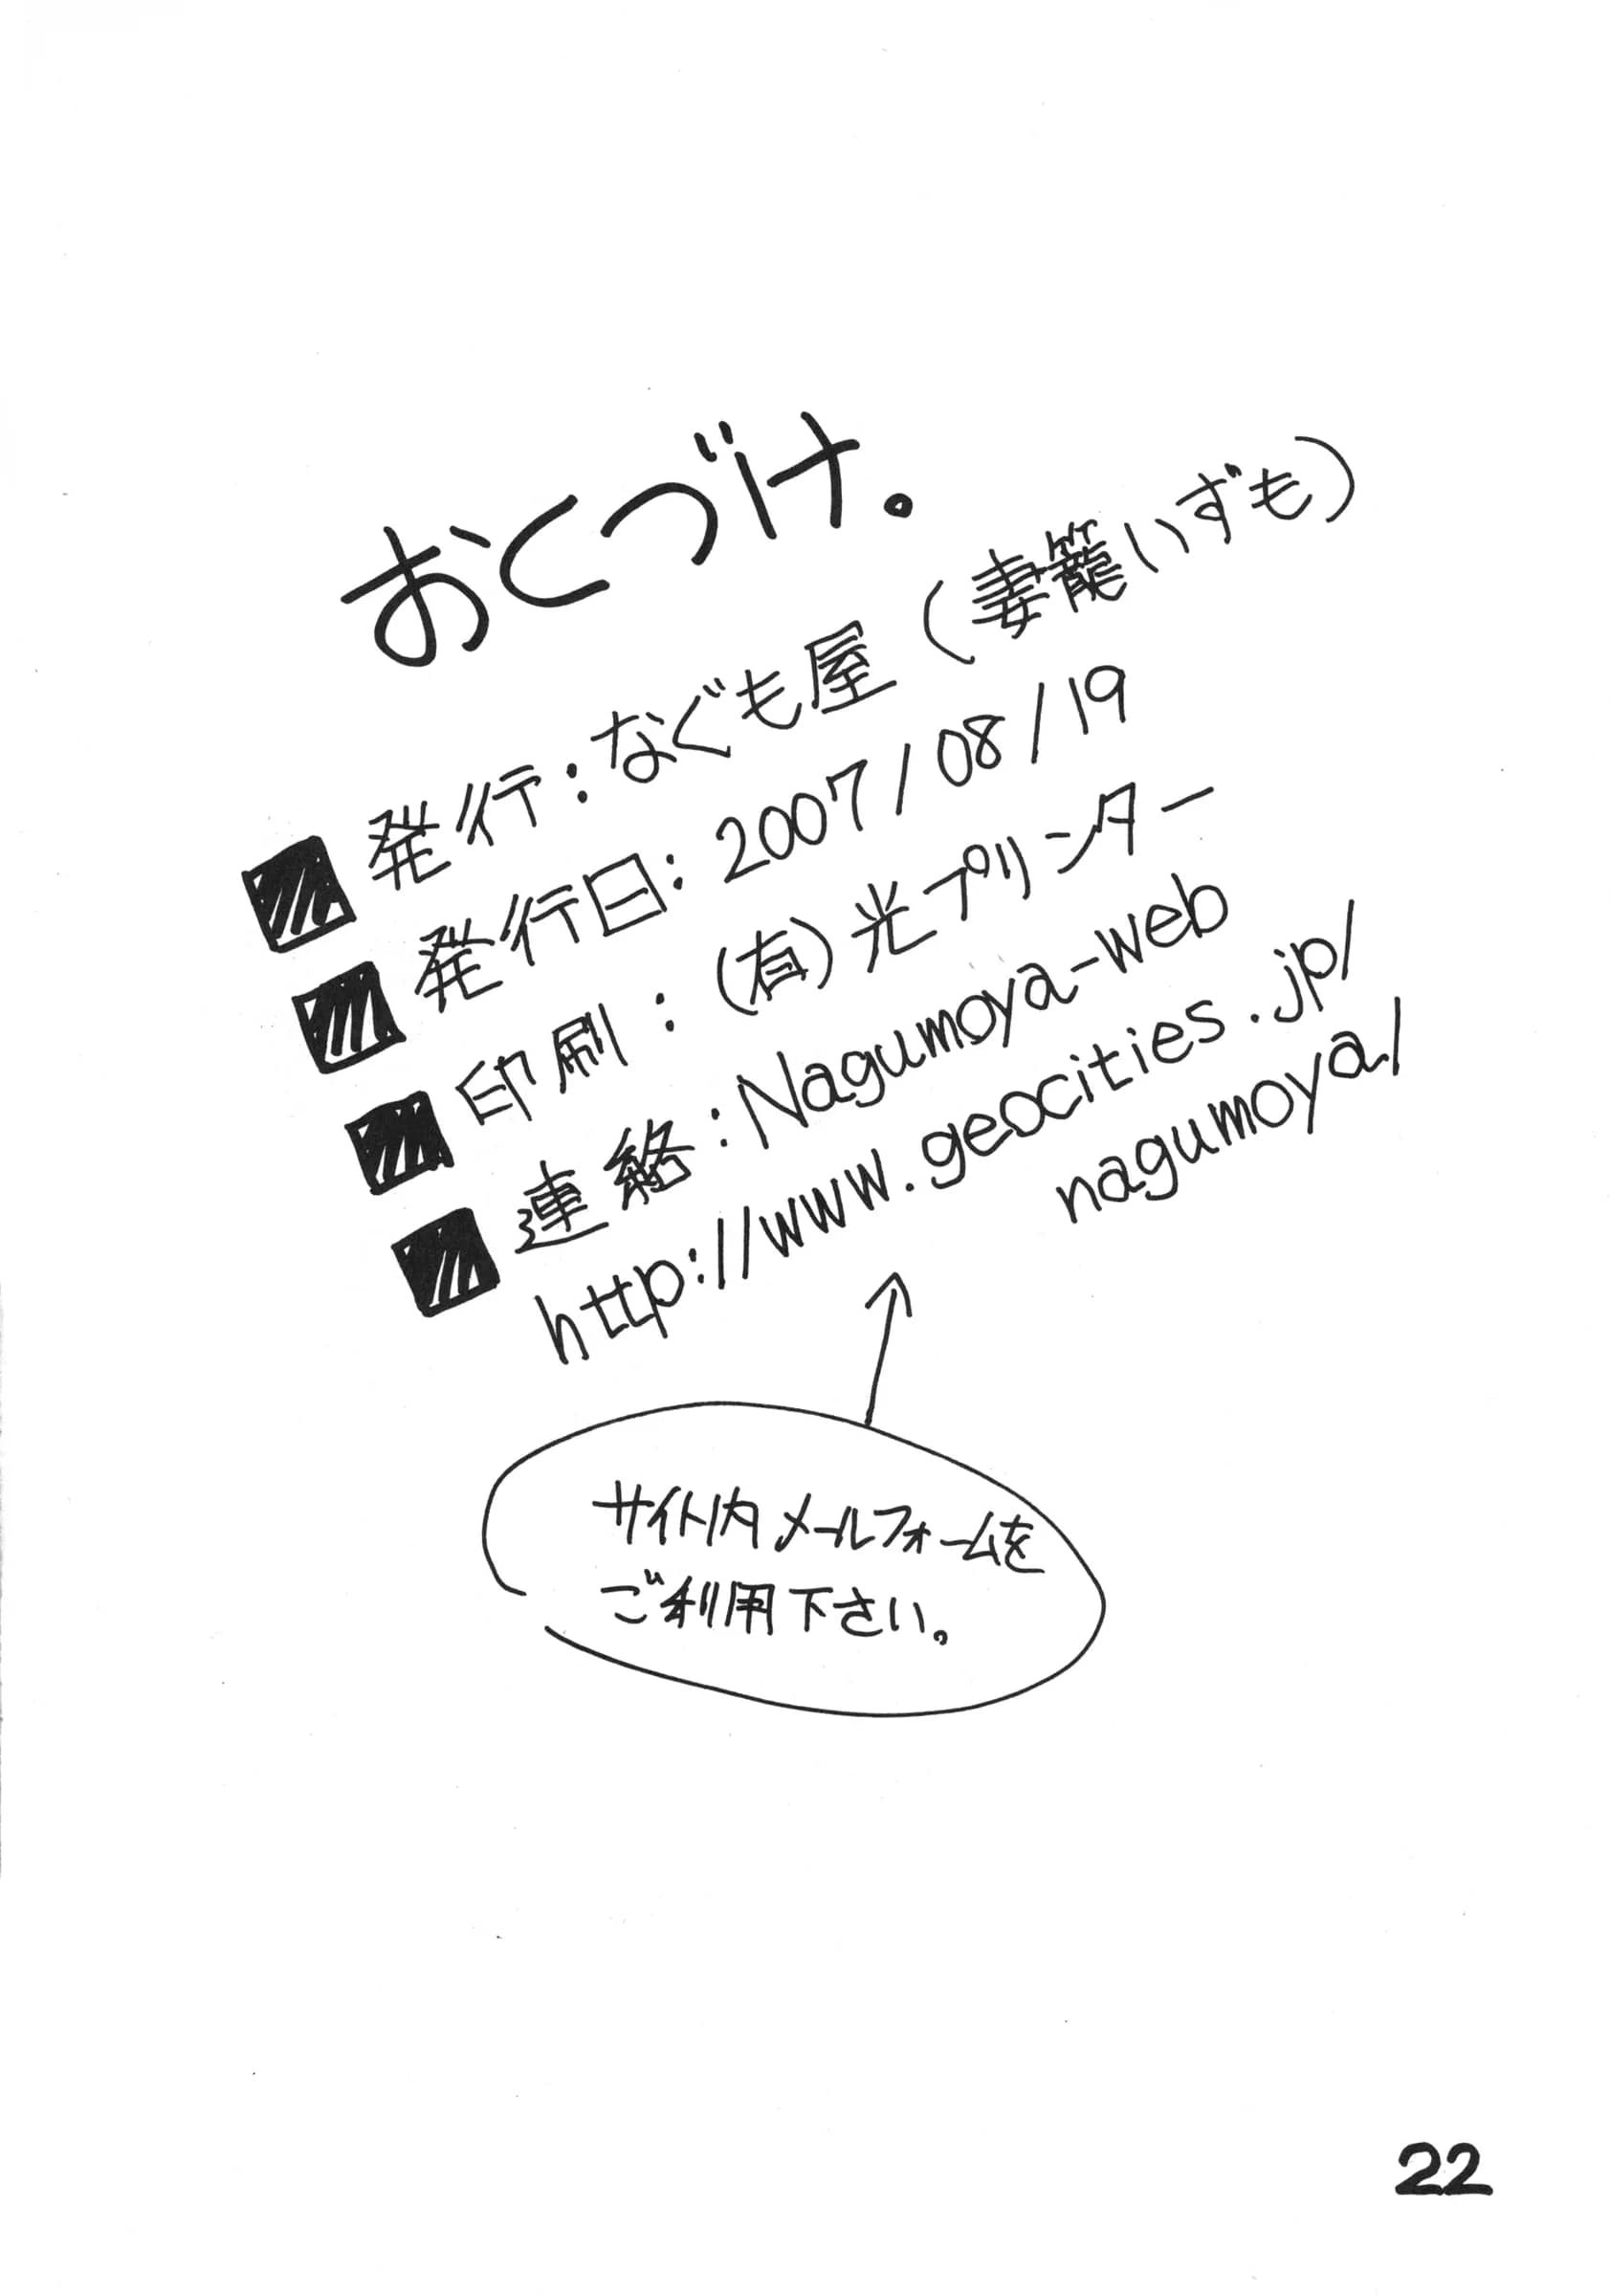 おくづけ。
■発行：なぐも屋（妻籠いずも）
■発行日：2007/08/19
■印刷：（有）光プリンター
■連絡：Nagumoya-web
http://www.geocities.jp/
nagumoya/
サイト内メールフォームを
ご利用下さい。
22